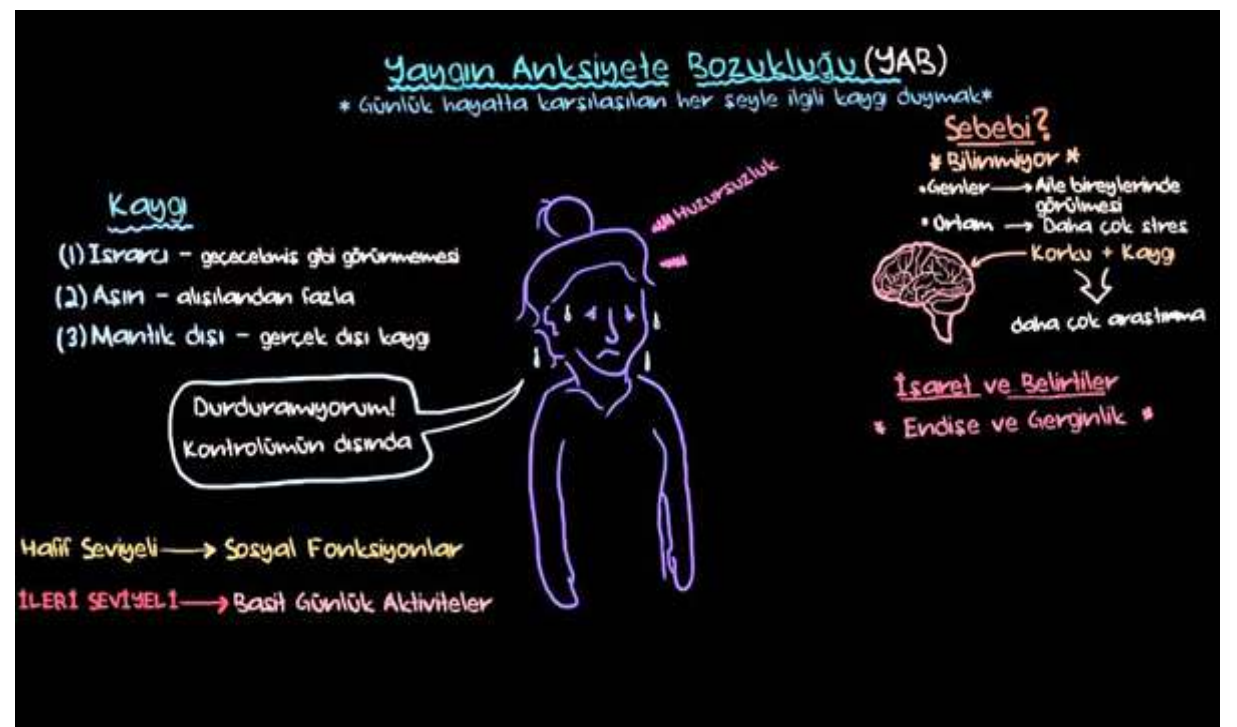 Yaygın Anksiyete Bozukluğu (YAB)
* Günlük hayatta karşılaşılan her şeyle ilgili kaygı duymak*
Kaygı
(1) Israrcı - geçecekmiş gibi görünmemesi
(2) Aşırı - alışılandan fazla
(3) Mantık dışı - gerçek dışı kaygı
Durduramıyorum!
Kontrolümün dışında
Hafif Seviyeli → Sosyal Fonksiyonlar
İLERİ SEVİYELİ → Basit Günlük Aktiviteler
Huzursuzluk
Sebebi?
* Bilinmiyor *
• Genler → Aile bireylerinde
görülmesi
• Ortam → Daha çok stres
Korku + Kaygı
daha çok araştırma
İşaret ve Belirtiler
* Endişe ve Gerginlik *